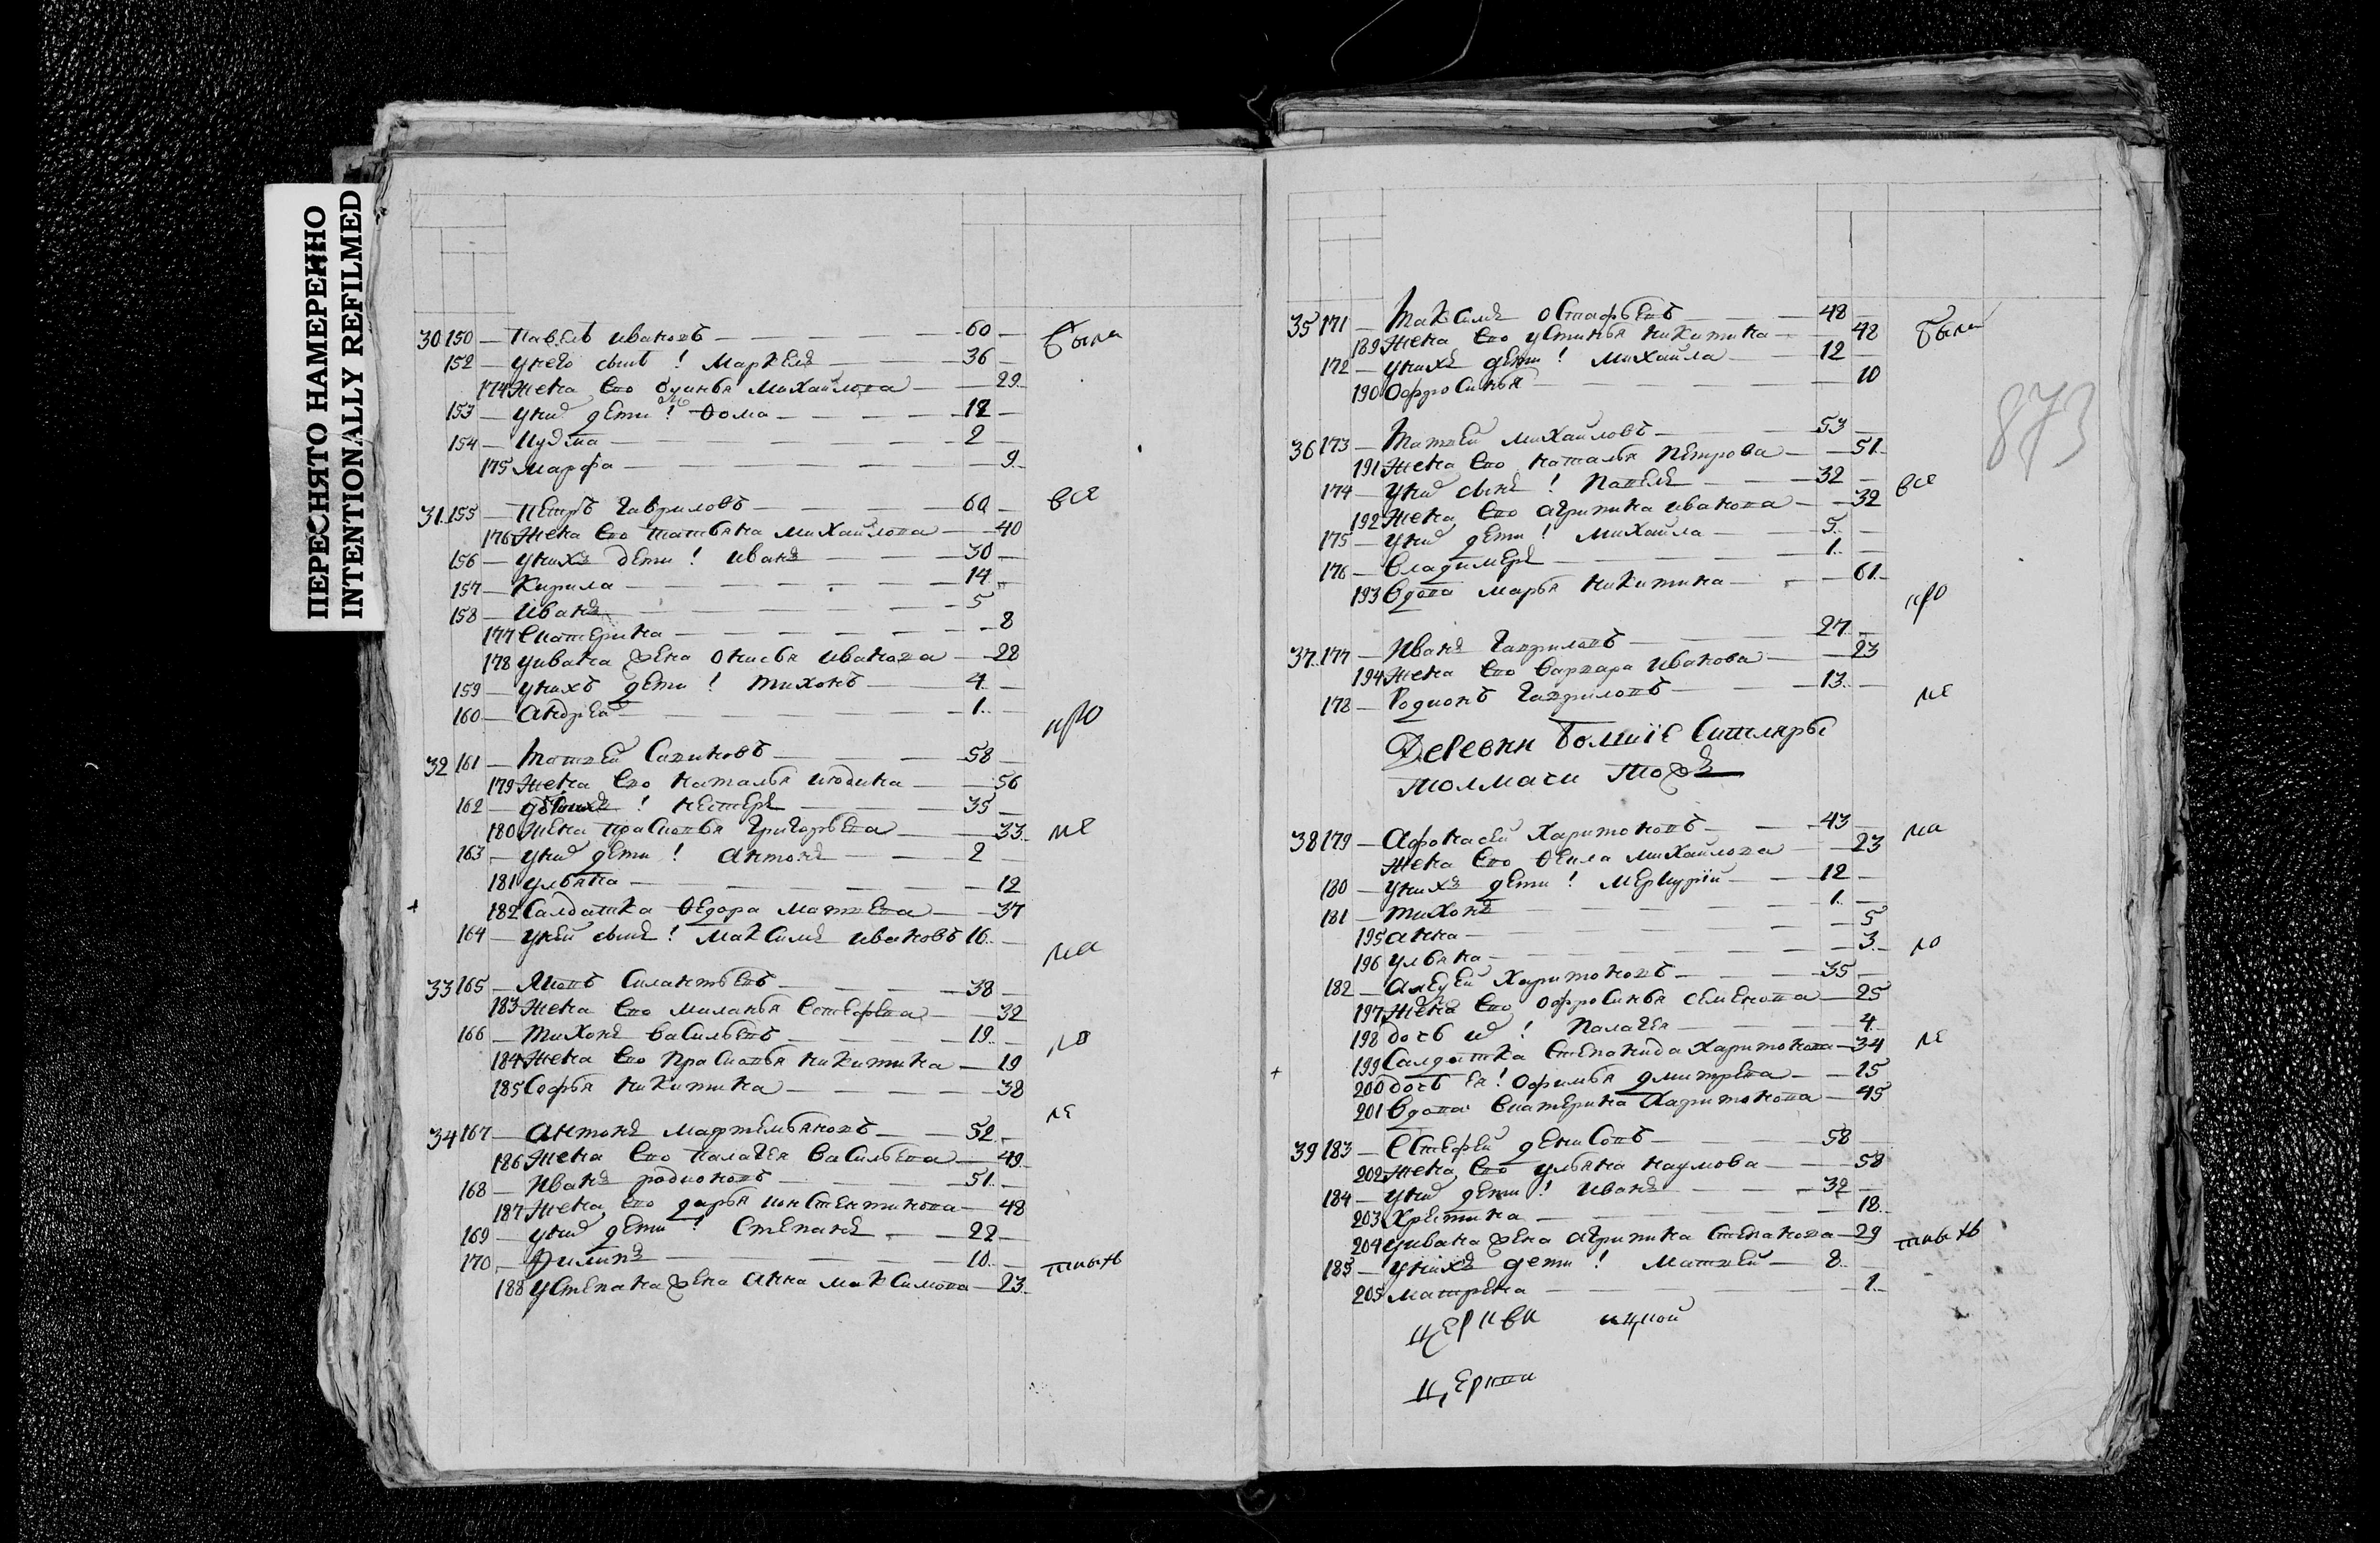 ПЕРЕСНЯТО НАМЕРЕННО
INTENTIONALLY REFILMED
30 150 — Павелъ Ивановъ — 60 — были
152 — у него сынъ ! Маркелъ — 36 —
174 Жена его Михайлова — 29
153 — у них дети ! Фома — 12 —
154 — Кузма — 2 —
175 Марфа — 9
31 155 — Петръ Гавриловъ — 60 — все
176 Жена его Татьяна Михайлова — 40
156 — у нихъ дети ! Иванъ — 30 —
157 — Кирила — 14
158 — Иванъ — 5
177 Екатерина — 8
178 у Ивана жена Онисья Иванова — 28
159 — у нихъ дети ! Тихонъ — 4 —
160 — Андрей — 1 — про
32 161 — Матвей Савиновъ — 58 —
179 Жена его Наталья Июдина — 56
162 — ! Нестеръ — 35 —
180 Жена Прасковья Григорьева — 33 ме
163 — у них дети ! Антонъ — 2
181 Ульяна — 12
+ 182 Салдатка Федора Матвеева — 37
164 — у ней сынъ ! Максимъ Ивановъ 16 — на
33 165 — Яковъ Силантьевъ — 38 —
183 Жена его Маланья Естефеева — 32
166 — Тихонъ Васильевъ — 19 — ло
184 Жена его Прасковья Никитина — 19
185 Софья Никитина — 38
34 167 — Антонъ Мартемьяновъ — 52 — ле
186 Жена его Палагея Васильева — 49
168 — Иванъ Родионовъ — 51 —
187 Жена его Дарья Констентинова — 48
169 — у них дети ! Степанъ — 22 —
170 — Филипъ — 10 —
188 у Степана жена Анна Максимова — 23
35 171 — Максимъ Остафьевъ — 48 были
189 Жена его Устинья Никитина — 42
172 — у нихъ дети ! Михайла — 12 —
190 Офросинья — 10
873
36 173 — Матвей Михайловъ — 53
191 Жена его Наталья Петрова — 51
174 — у них сынъ ! Павелъ — 32 — все
192 Жена его Агрипина Иванова — 32
175 — у них дети ! Михайла — 5 —
176 — Владимеръ — 1 —
193 Вдова Марья Никитина — 61 про
37 177 — Иванъ Гавриловъ — 27 —
194 Жена его Варвара Иванова — 23
178 — Родионъ Гавриловъ — 13 — ме
Деревни Болшiе
Толмаси тожъ
38 179 — Афонасей Харитоновъ — 43 на
Жена его Фекла Михайлова 23
180 — у нихъ дети ! Меркурiй — 12 —
181 — Тихонъ — 1 —
195 Анна — 5
196 Ульяна — 3 ло
182 — Алексей Харитоновъ — 35 —
197 Жена его Офросинья Семенова — 25
198 дочь их ! Палагея — 4
199 Салдатка Степанида Харитонова — 34 ле
+ 200 дочь ея ! Офимья Дмитрева — 15
201 Вдова Екатерина Харитонова — 45
39 183 — Естефей Денисовъ — 58
202 Жена его Ульяна Наумова — 58
184 — у них дети ! Иванъ — 32 —
203 Христина — 18
204 у Ивана жена Агрипина Степанова — 29
185 — у нихъ дети ! Матвей — 8
205 Матрена — 1
церкви
церкви